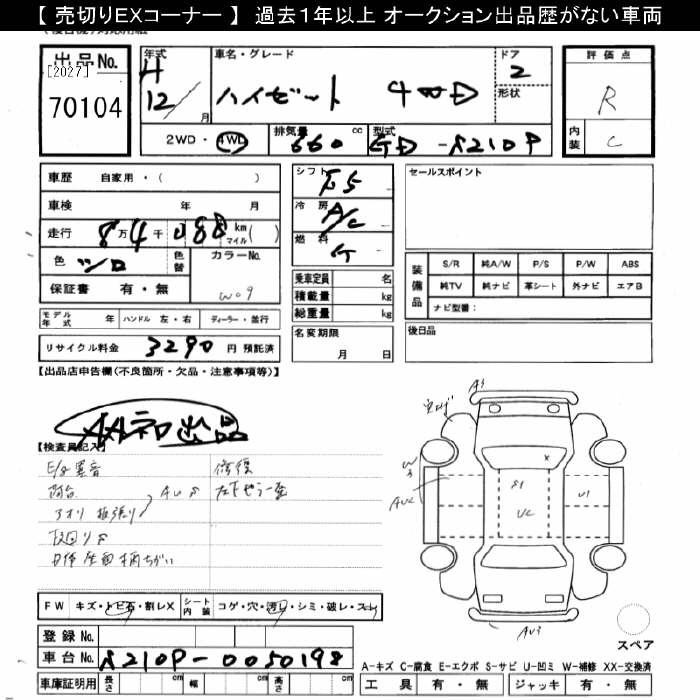 【 売切りEXコーナー 】 過去１年以上 オークション出品歴がない車両
出品No.
[2027]
70104
年式 H 12/ 月
車名・グレード
ハイゼット 4WD
ドア 2
形状
評価点
R
内装 C
2WD・4WD
排気量 660 cc
型式 GD-S210P
車歴 自家用・( )
車検 年 月
走行 8万4千088 km マイル ( )
色 シロ
色替
カラーNo. W09
保証書 有・無
シフト F5
冷房 A/C
燃料 G
乗車定員 名
積載量 kg
総重量 kg
セールスポイント
装備品
S/R 純A/W P/S P/W ABS
純TV 純ナビ 革シート 外ナビ エアB
ナビ型番：
モデル年式 年 ハンドル 左・右 ディーラー・並行
リサイクル料金 3290 円 預託済
名変期限 月 日
後日品
【出品店申告欄(不良箇所・欠品・注意事項等)】
AA初出品
【検査員記入】
E/g異音 修復
荷台 AUS
アオリ 板張り
下回りS
A3
W3
AU2
S1
UC
U1
x
AU3
FW キズ・トビ石・割レX
シート内装 コゲ・穴・汚レ・シミ・破レ・スレ
登録No.
車台No. S210P-0050198
車庫証明用 長さ cm 幅 cm 高さ cm
スペア
A-キズ C-腐食 E-エクボ S-サビ U-凹ミ W-補修 XX-交換済
工具 有・無 ジャッキ 有・無